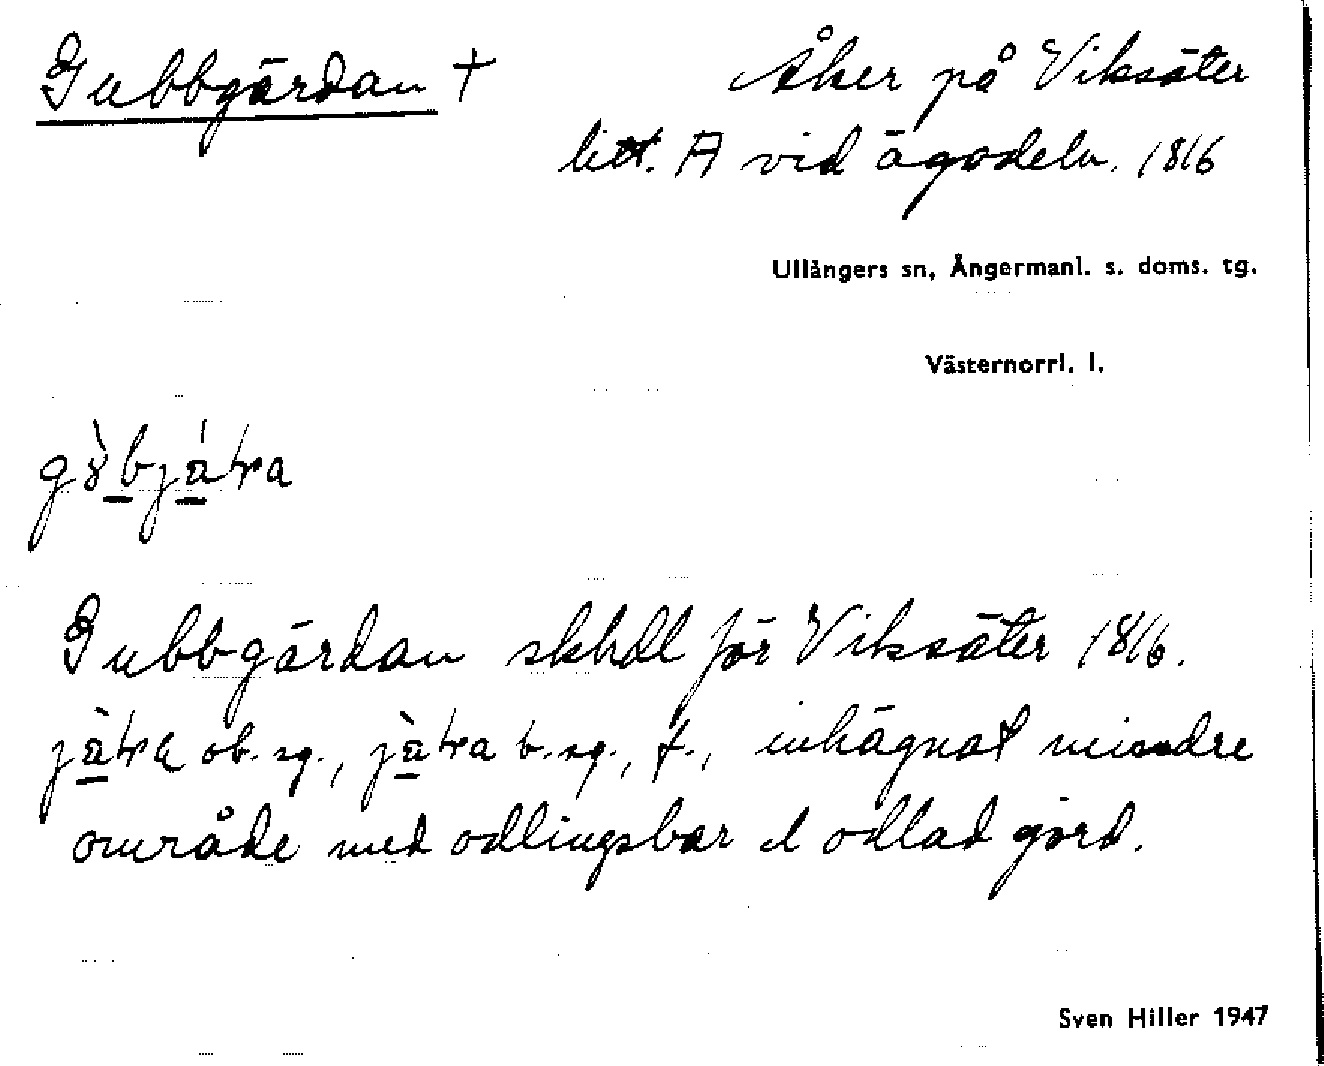 Gubbgärdan † Åker på Viksäter
litt. A vid ägodeln. 1816
Ullångers sn, Ångermanl. s. doms. tg.
Västernorrl. l.
Gubbgärdan skhdl för Viksäter 1816.
ob. sg., b. sg., f., inhägnat mindre
område med odlingsbar el odlad jord.
Sven Hiller 1947